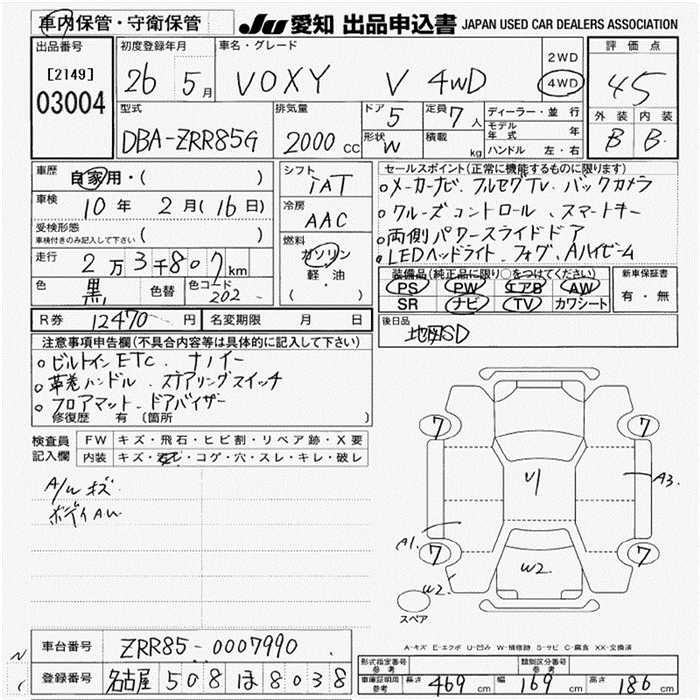 車内保管・守衛保管 JU 愛知 出品申込書 JAPAN USED CAR DEALERS ASSOCIATION
出品番号 初度登録年月 車名・グレード 評価点
[2149] 26 5月 VOXY V 4WD 2WD 4WD 45
03004 型式 排気量 ドア 5 定員 7人 ディーラー・並行 外装 内装
DBA-ZRR85G 2000 CC 形状 W 積載 kg モデル年式 年 B B
ハンドル 左・右
車歴 自家用・( ) シフト セールスポイント(正常に機能するものに限ります)
IAT 。メーカーナビ、フルセグTV、バックカメラ
車検 10年 2月(16日) 冷房 。クルーズコントロール、スマートキー
受検形態 AAC 。両側パワースライドドア
車検付きのみ記入して下さい ( ) 燃料 。LEDヘッドライト、フォグ、Aハイビーム
走行 2万3千807km ガソリン 装備品(純正品に限り○をつけてください) 新車保証書
色 黒 色替 色コード 202 軽・油 PS PW エアB AW 有・無
(・) SR ナビ TV カワシート
R券 12470円 名変期限 月 日 後日品
地図SD
注意事項申告欄(不具合内容等は具体的に記入して下さい)
。ビルトインETC、ナノイー
。革巻ハンドル、ステアリングスイッチ
。フロアマット、ドアバイザー
修復歴 有 〔箇所 〕
検査員記入欄 FW キズ・飛石・ヒビ割・リペア跡・X要
内装 キズ・汚れ・コゲ・穴・スレ・キレ・破レ
A/W キズ
7 7
U1 A3
A1 7 7
W2 W2
スペア
A-キズ E-エクボ U-凹み W-補修跡 S-サビ C-腐食 XX-交換済
車台番号 ZRR85-0007990
形式指定番号 参考 類別区分番号 参考
登録番号 名古屋 508 ほ 8038
車庫証明用 参考 長さ 469 cm 幅 169 cm 高さ 186 cm